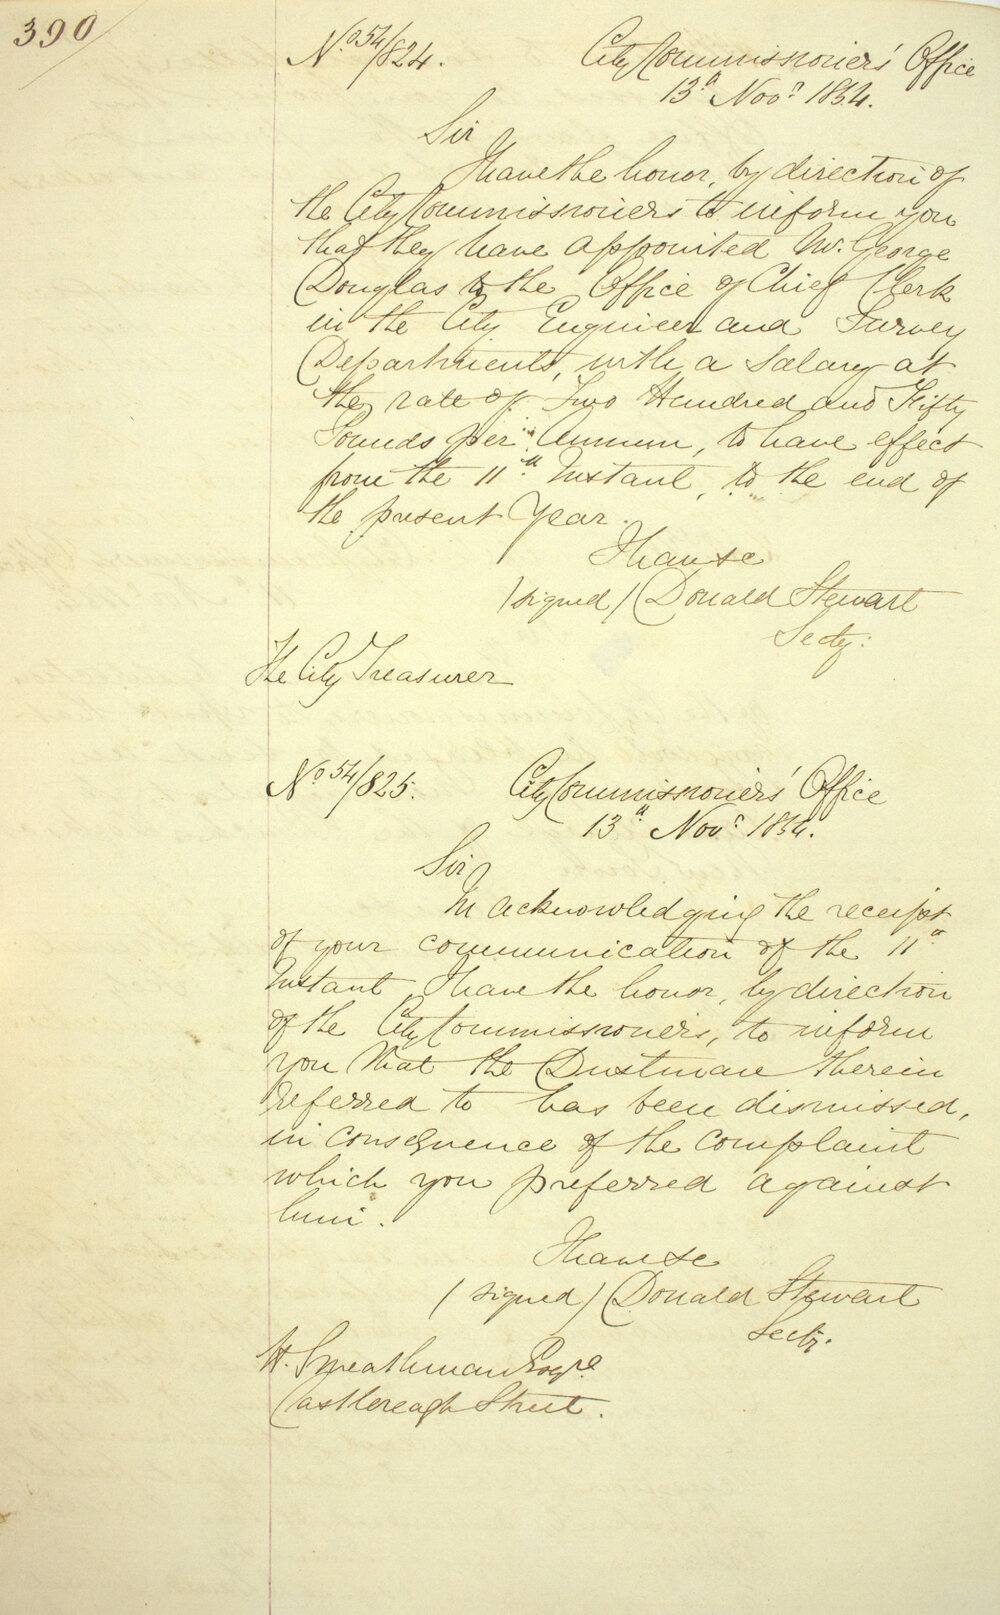 390
No 54/824. City Commissioners' Office
13th Novr 1854.
Sir
I have the honor, by direction of
the City Commissioners to inform you
that they have appointed Mr. George
Douglas to the Office of Chief Clerk
in the City Engineer and Survey
Departments, with a Salary at
the rate of Two Hundred and Fifty
Pounds per Annum, to have effect
from the 11th Instant, to the end of
the present Year.
I have &c
(signed) Donald Stewart
Secty:
The City Treasurer
No 54/825. City Commissioners' Office
13th Novr 1854.
Sir
In acknowledging the receipt
of your communication of the 11th
Instant I have the honor, by direction
of the City Commissioners, to inform
you that the Dustman therein
referred to has been dismissed,
in consequence of the complaint
which you preferred against
him.
I have &c
(signed) Donald Stewart
Secty.
H. Smeathman Esqre
Castlereagh Street.